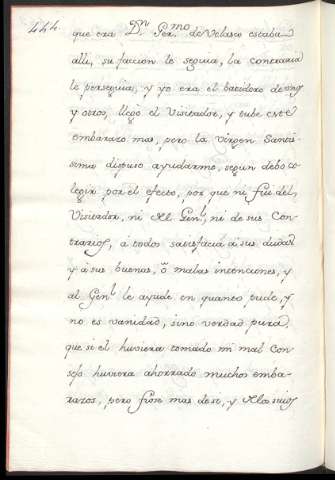 444.
que era Dn. Germo. de Velasco estaba
alli, su faccion le seguia, la contraria
le perseguia, y yo era el batidero de unos
y otros, llegó el Visitador, y tube este
embarazo mas, pero la Virgen Santi-
sima dispuso ayudarme, segun debo co-
legir por el efecto, por que ni fui del
Visitador, ni del Genl., ni de sus Con-
trarios, á todos satisfacia á sus dudas
y á sus buenas, ó malas intenciones, y
al Genl. le ayude en quanto pude, y
no es vanidad, sino verdad pura
que si el huviera tomado mi mal Con-
sejo huviera ahorrado muchos emba-
razos, pero fiose mas de si, y de los suios